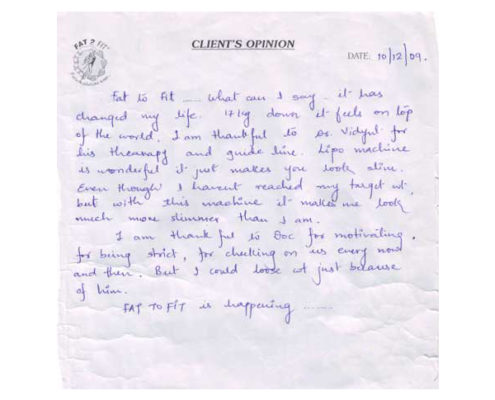 FAT 2 FIT
CLIENT'S OPINION
DATE: 10/12/09.
Fat to Fit ...... what can I say - it has
changed my life. 17 kg down it feels on top
of the world. I am thankful to Dr. Vidyut for
his thearapy and guide line. Lipo machine
is wonderful it just makes you look slim.
Even though I havent reached my target wt.
but with this machine it makes me look
much more slimmer than I am.
I am thankful to Doc for motivating.
for being strict, for checking on us every now
and then. But I could loose wt just because
of him.
FAT TO FIT is happening .......